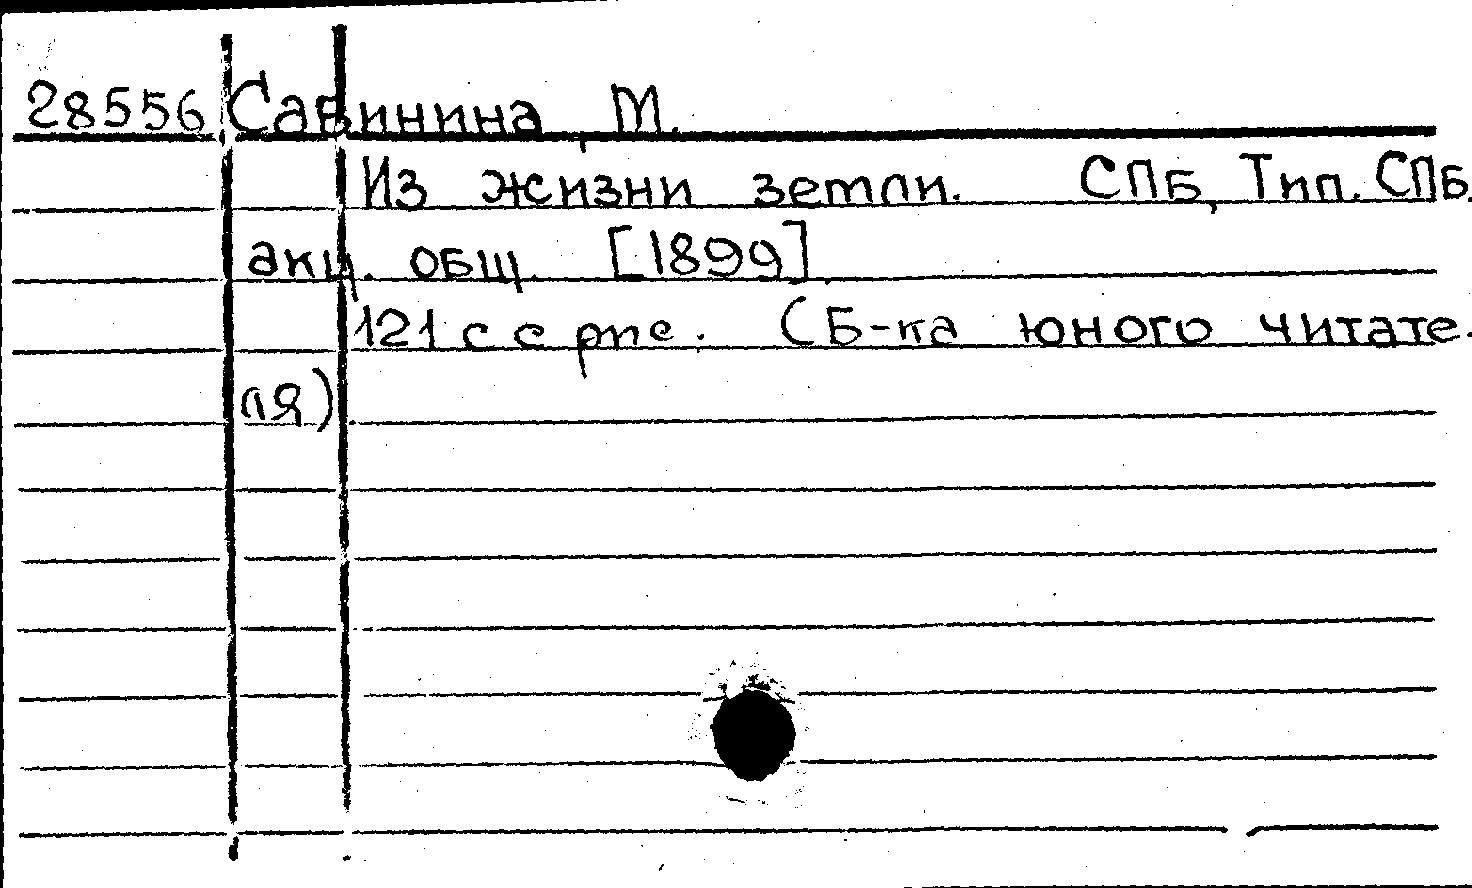 28556 Савинина, М.
Из жизни земли. СПБ, Тип. СПб.
акц. общ. [1899]
121 с с рис. (Б-ка юного читате-
ля)